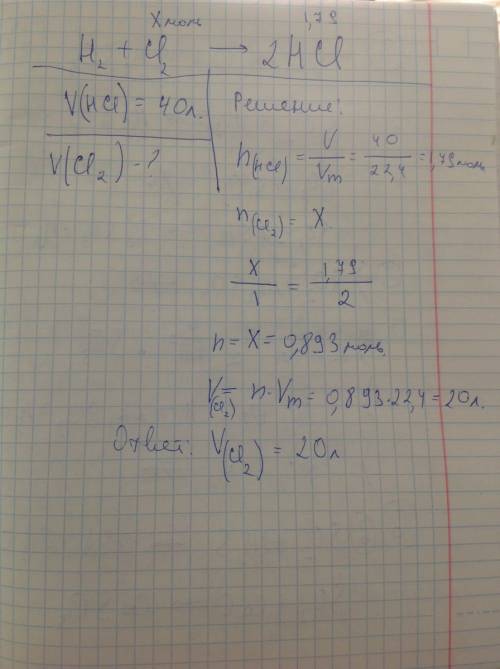 X моль 1,79
H₂ + Cl₂ → 2HCl
V(HCl) = 40л.
V(Cl₂) - ?
Решение:
n(HCl) = V/Vm = 40/22,4 = 1,79 моль
n(Cl₂) = X
X/1 = 1,79/2
n = X = 0,893 моль.
V(Cl₂) = n · Vm = 0,893·22,4 = 20л.
Ответ: V(Cl₂) = 20л